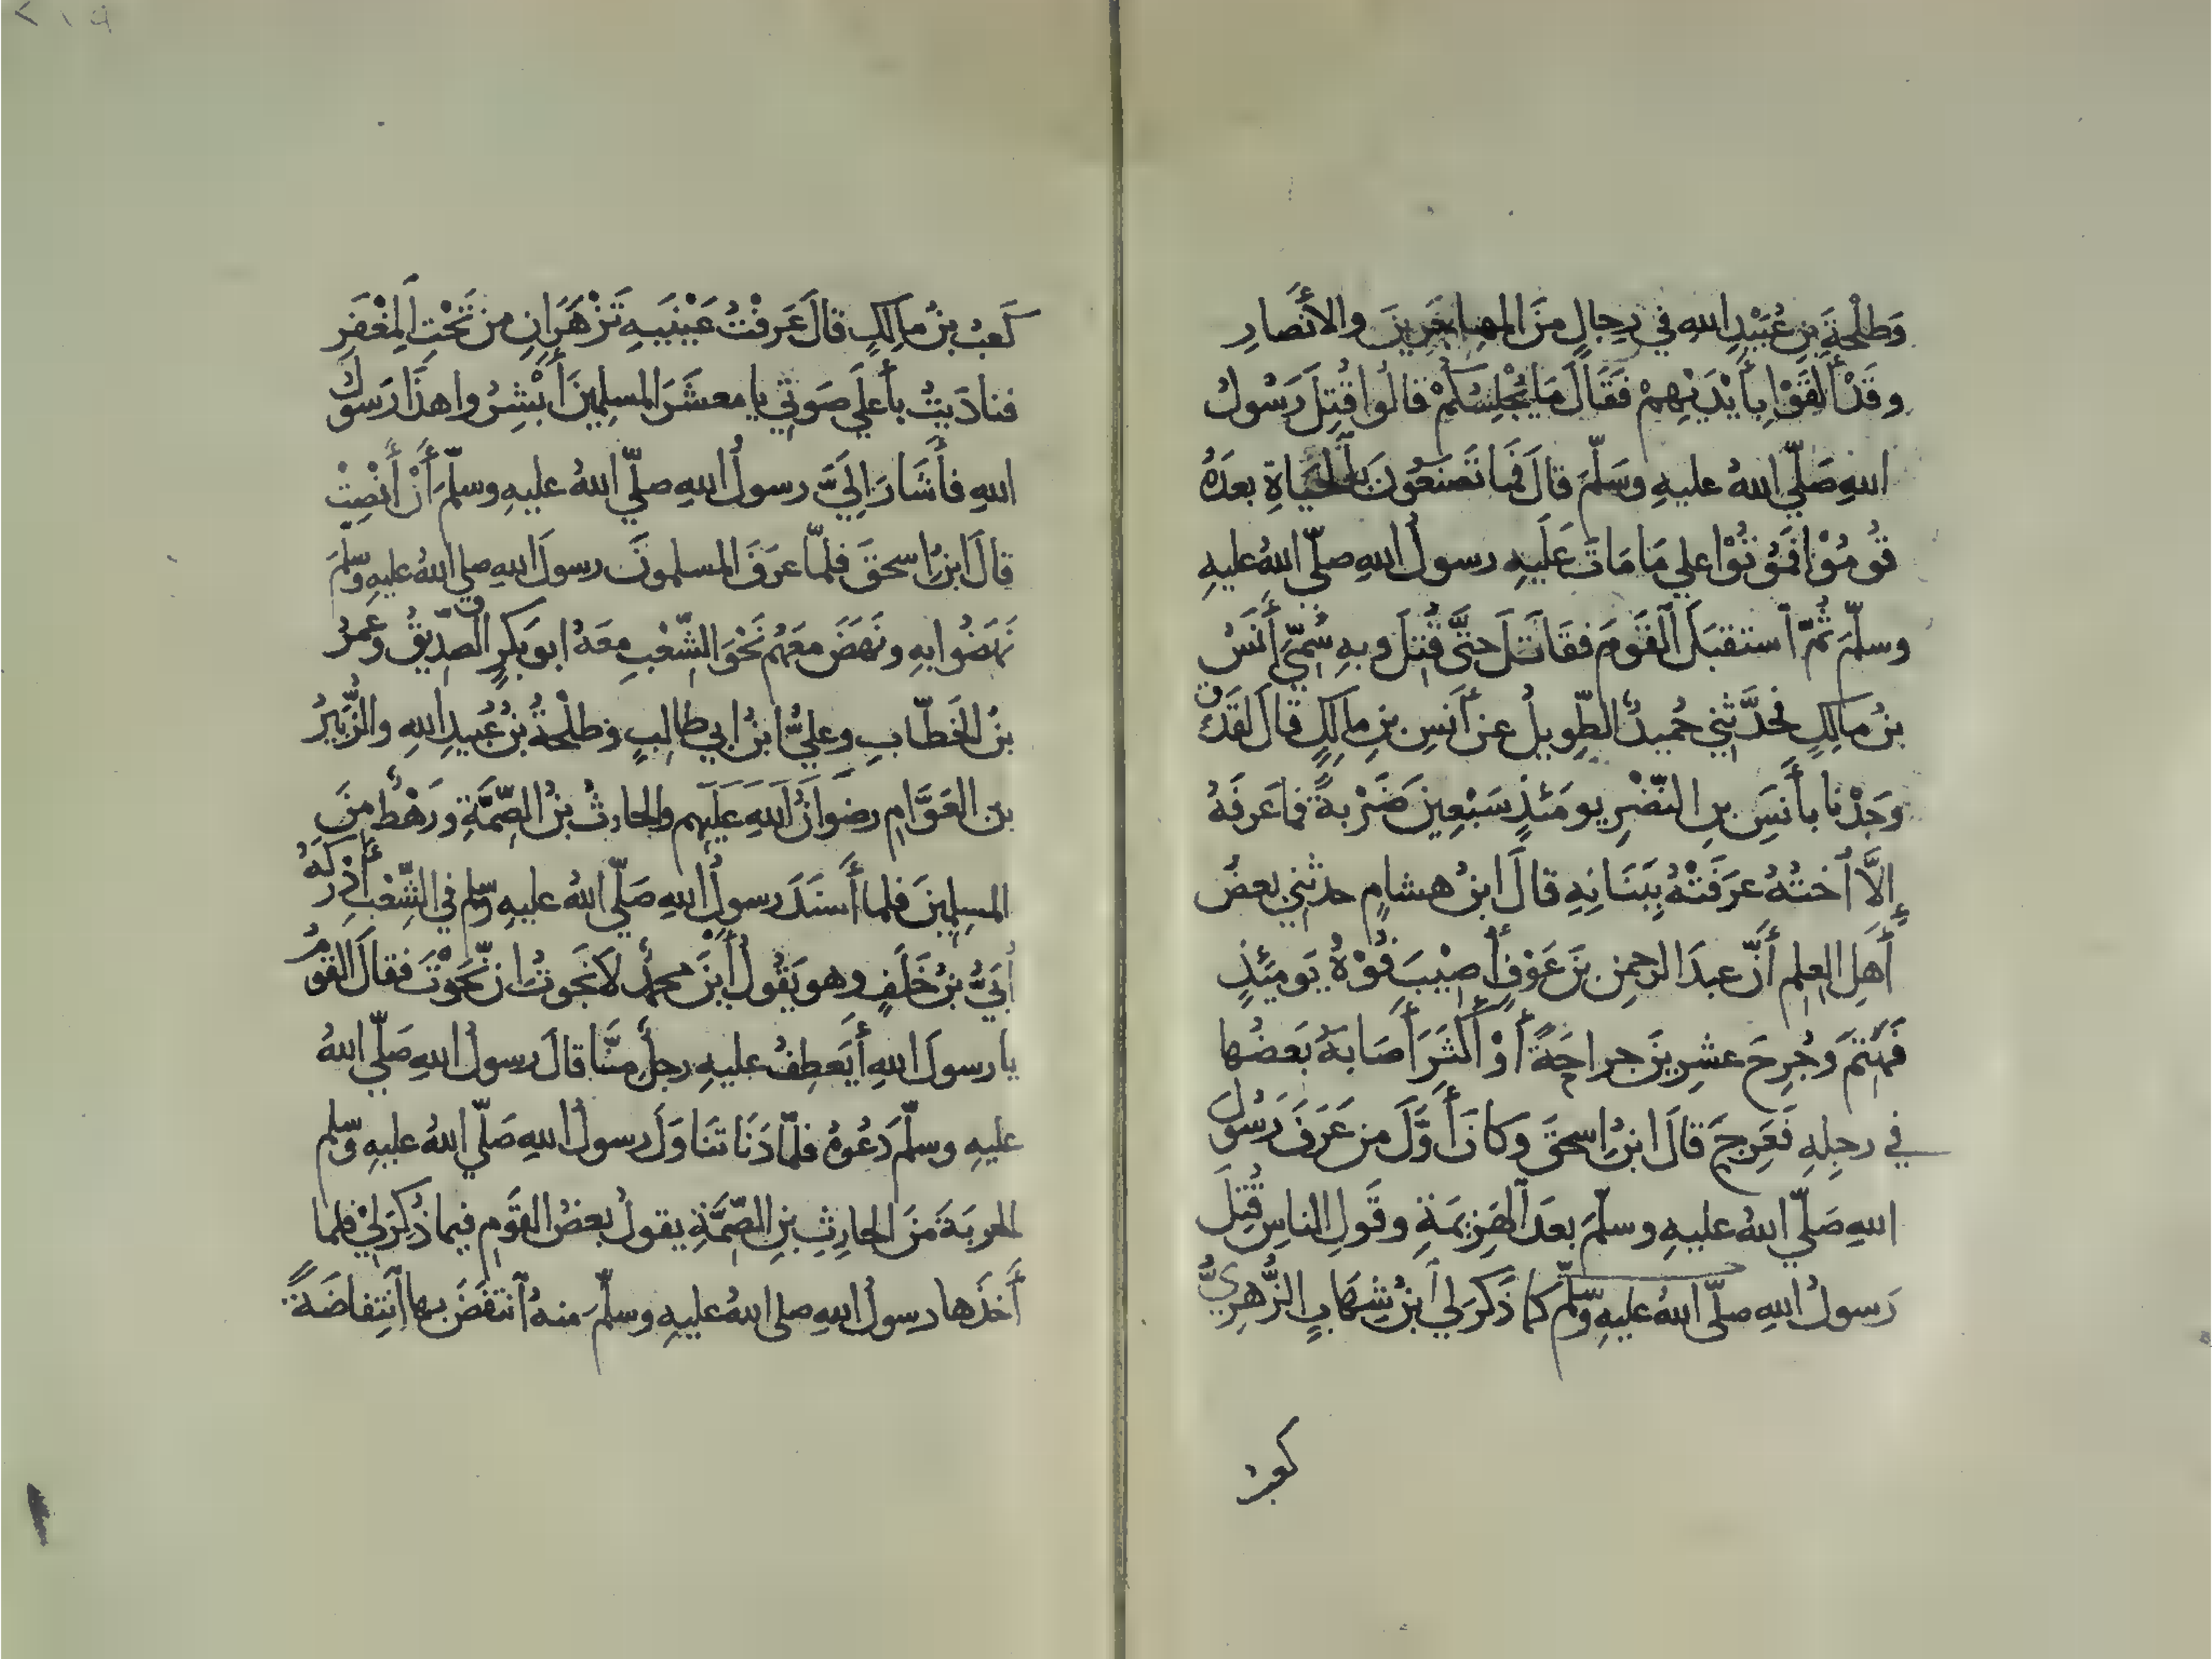 وَطَلْحَةَ بنِ عُبَيْدِ اللهِ في رِجالٍ مِنَ المهاجِرِينَ والأَنْصارِ
وقَدْ أَلْقَوْا بِأَيْدِيْهِمْ فَقَالَ مَا يُجْلِسُكُمْ قالُوا قُتِلَ رَسُولُ
اللهِ صَلّي اللهُ عليهِ وَسَلّمَ قالَ فَما تَصنَعُونَ بِالْحَيَاةِ بعدَهُ
قُومُوْا فَمُوتُوْا علي مَا مَاتَ عَلَيهِ رسولُ اللهِ صلّي اللهُ عليهِ
وسلّمَ ثُمّ ٱستقبَلَ ٱلقَومَ فقَاتلَ حتَّى قُتِلَ وبهِ سُمِّيَ أَنَسُ
بنُ مالِكٍ فحَدَّثني حُميدٌ الطّوِيلُ عن أَنَسِ بنِ مالِكٍ قالَ لقَد
وَجَدْنا بأَنَسِ بنِ النّضْرِ يومَئذٍ سَبْعِينَ ضَرْبةً فما عَرفَهُ
إِلَّا أُختُهُ عرَفَتْهُ بِبَنَانِهِ قالَ ابنُ هشامٍ حدثني بعضُ
أَهلِ العِلمِ أَنّ عبدَ الرحمنِ بنَ عَوْفٍ أُصِيْبَ فُوْهُ يَومَئِذٍ
فَهُتِمَ وجُرِحَ عشرِينَ جراحَةً أَوْ أَكْثَرَ أَصَابَهُ بَعضُها
في رجلِهِ فَعَرِجَ قالَ ابنُ إسحقَ وكانَ أَوَّلَ من عَرَفَ رَسُولَ
اللهِ صَلّي اللهُ عليهِ وسلّمَ بعدَ ٱلهَزِيمَةِ وقَولِ الناسِ قُتِلَ
رَسولُ اللهِ صلّي اللهُ عليهِ وسّلم كما ذَكرَ لي ٱبنُ شِهَابٍ الزُّهرِيُّ
كعبُ
كَعبُ بنُ مالِكٍ قالَ عَرفْتُ عَيْنَيهِ تَزْهَرَانِ من تَحْتِ المِغْفَرِ
فنادَيتُ بأَعلَي صَوتي يا معشَرَ المسلِمِينَ أَبْشِرُوا هذَا رَسولُ
اللهِ فأَشَارَ إلَيَّ رسولُ اللهِ صلّي اللهُ عليهِ وسلّمَ أَنْ أَنْصِتْ
قالَ ابنُ إسحقَ فلمّا عرَفَ المسلمونَ رسولَ اللهِ صلي اللهُ عليهِ وسلّمَ
نَهَضُوا بهِ ونَهَضَ معَهُم نَحْوَ الشّعْبِ معَهُ ابو بَكرٍ الصّدّيقُ وعُمرُ
بنُ الخَطّابِ وعليُّ ابنُ ابي طالِبٍ وطلْحةُ بنُ عُبَيدِ اللهِ والزُّبَيرُ
بن العَوَّامِ رضوَانُ اللهِ عَلَيهِم والحارثُ بنُ الصِّمَّةِ ورَهْطٌ مِنَ
المسلِمِينَ فلما أَسنَدَ رسولُ اللهِ صَلّي اللهُ عليهِ وسّلم في الشِّعْبِ أَدْرَكَهُ
أُبَيُّ بنُ خَلَفٍ وهو يَقُولُ أَيْنَ محمدٌ لا نَجَوتُ إن نّجَوْتَ فقالَ القَومُ
يا رسولَ اللهِ أَيَعطِفُ عليهِ رجلٌ مِنَّا قالَ رسولُ اللهِ صَلّي اللهُ
عليهِ وسلّمَ دَعُوهُ فلمّا دَنَا تَنَاوَلَ رسولُ اللهِ صَلّي اللهُ عليهِ وسّلم
الحربَةَ مِنَ الحارِثِ بنِ الصِّمَّةِ يقولُ بعضُ القَومِ فيما ذُكِرَ ليْ فلما
أَخذَها رسولُ اللهِ صلي اللهُ عليهِ وسلّمَ منهُ ٱنتفَضَ بها ٱنتِفاضَةً